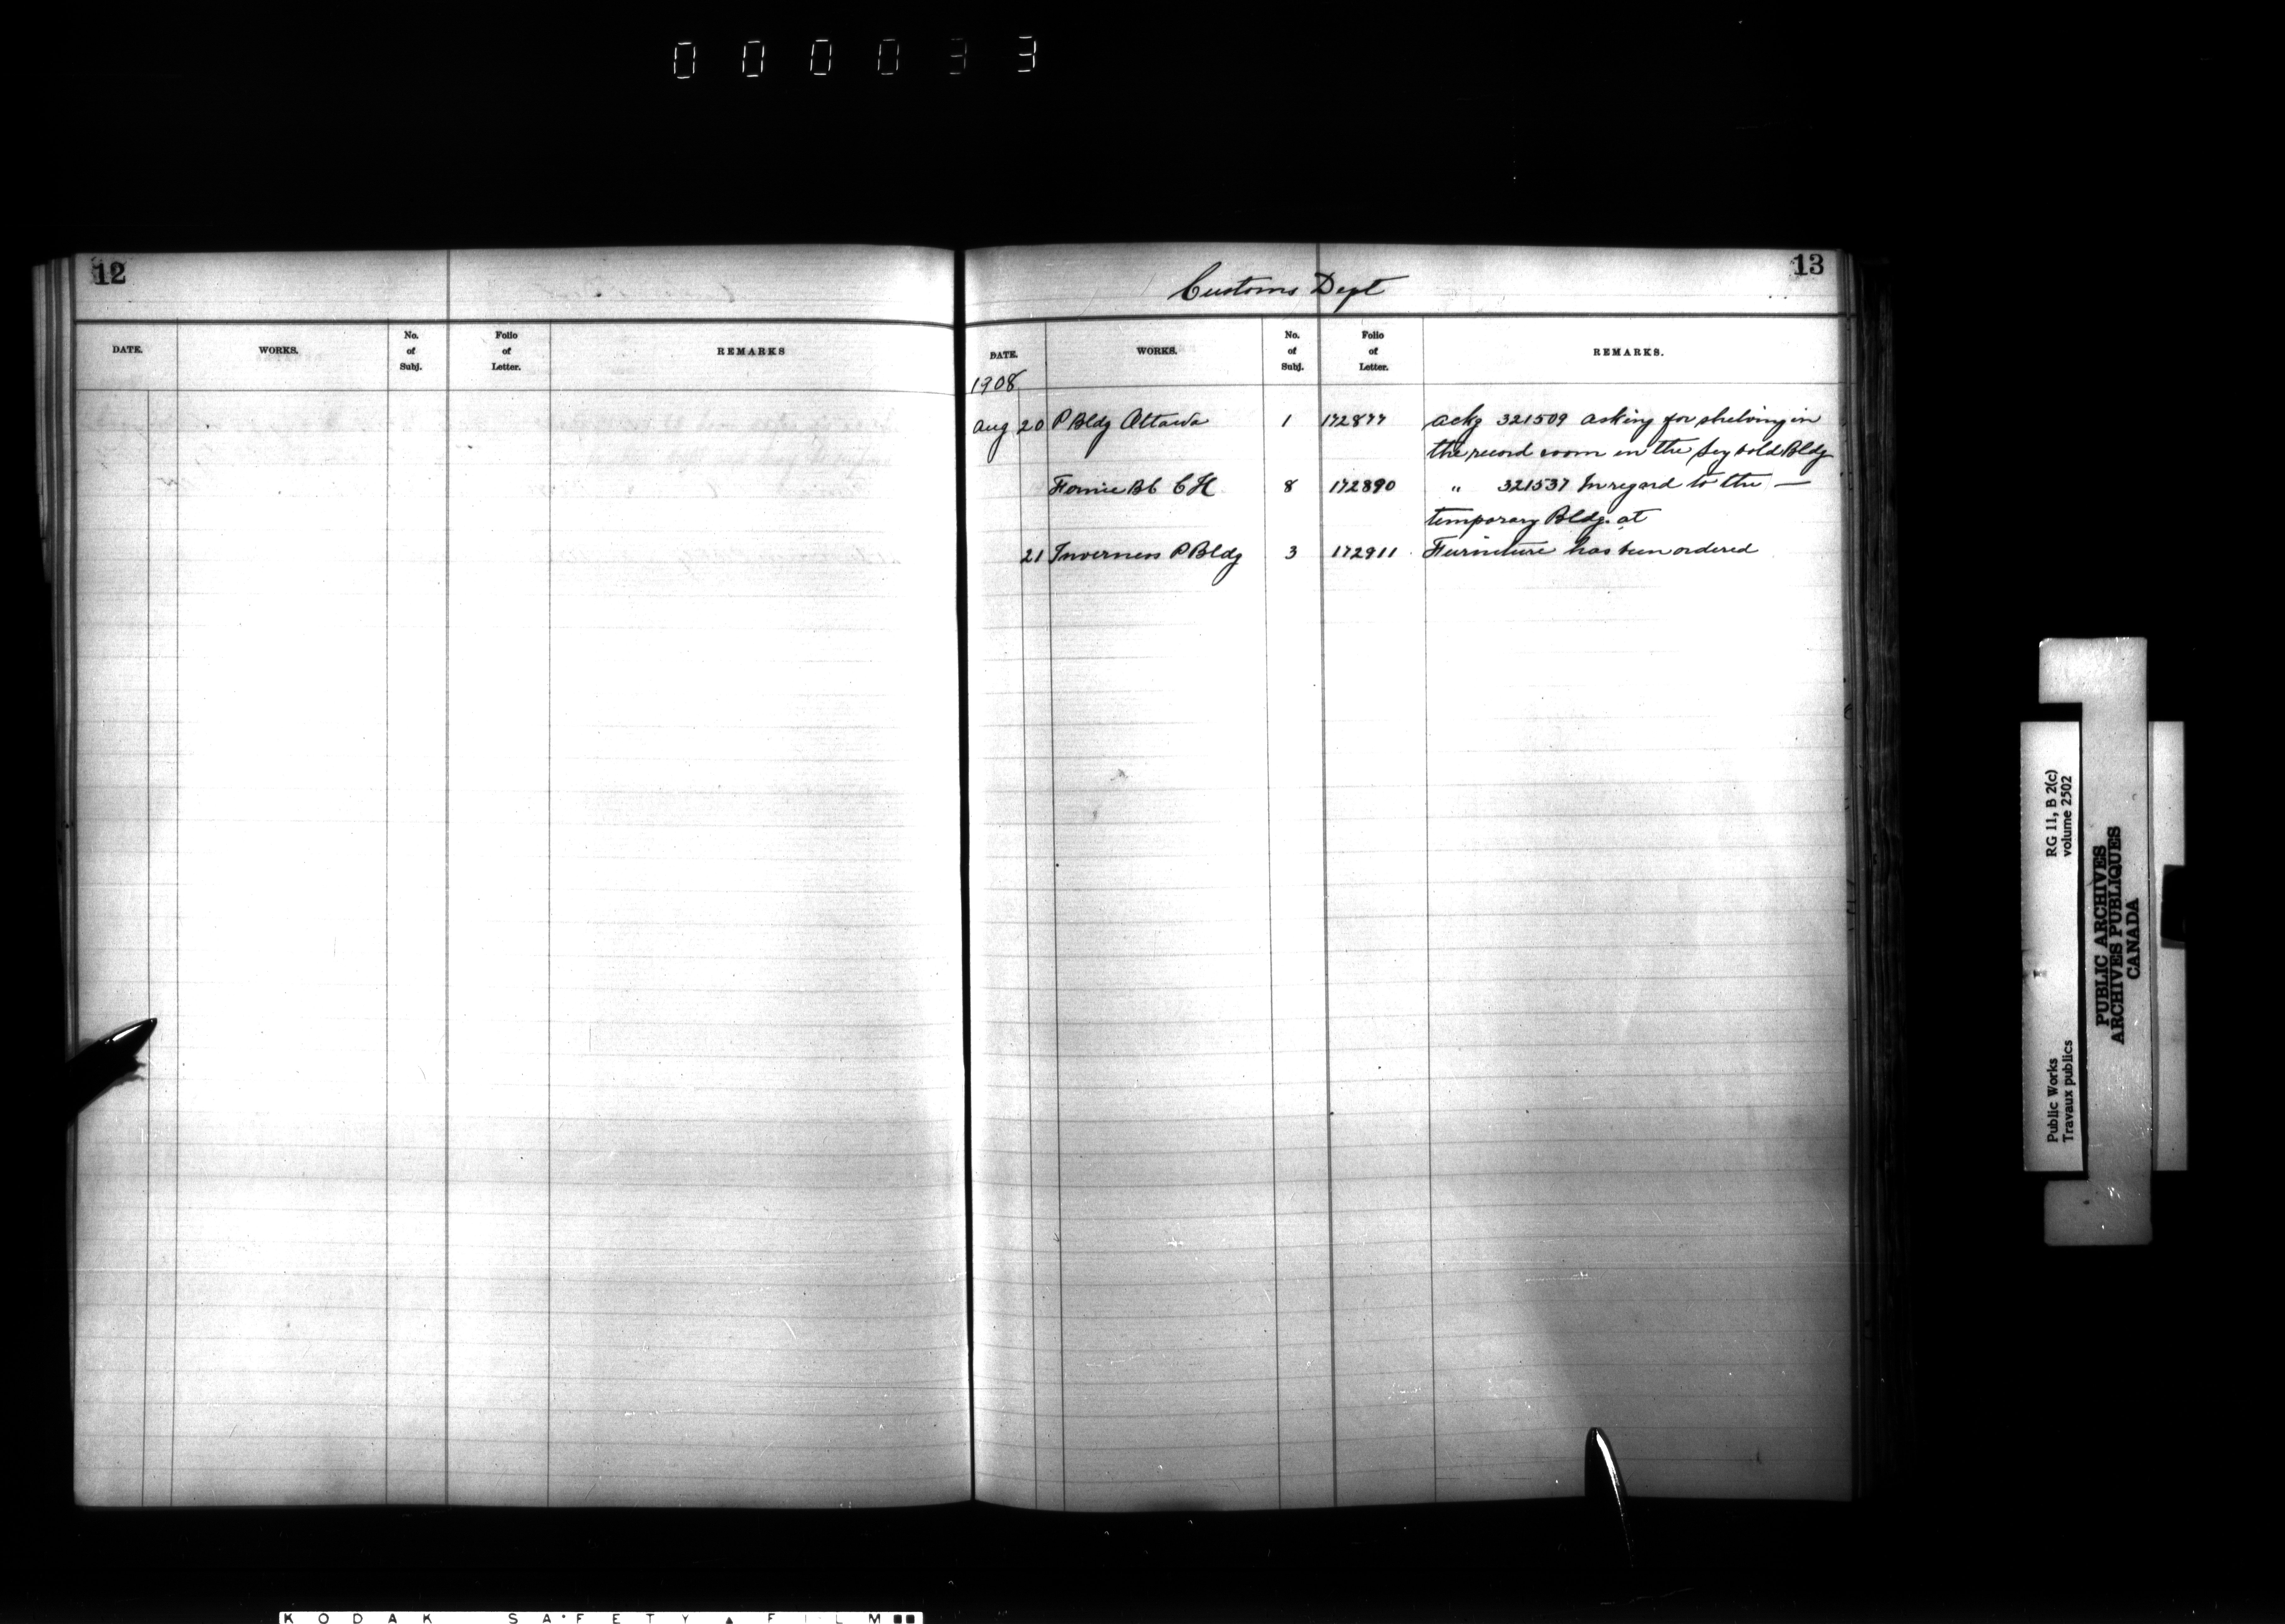 000033
12
DATE.
WORKS.
No. of Subj.
Folio of Letter.
REMARKS
13
Customs Dept
DATE.
WORKS.
No. of Subj.
Folio of Letter.
REMARKS.
1908
Aug 20 P Bldg Ottawa 1 172877 ackg 321509 asking for shelving in
the record room in the Seybold Bldg
Fernie BC CH 8 172890 " 321537 In regard to the —
temporary Bldg. at
21 Inverness P Bldg 3 172911 Furniture has been ordered
RG 11, B 2(c)
volume 2502
Public Works
Travaux publics
PUBLIC ARCHIVES
ARCHIVES PUBLIQUES
CANADA
KODAK SAFETY FILM